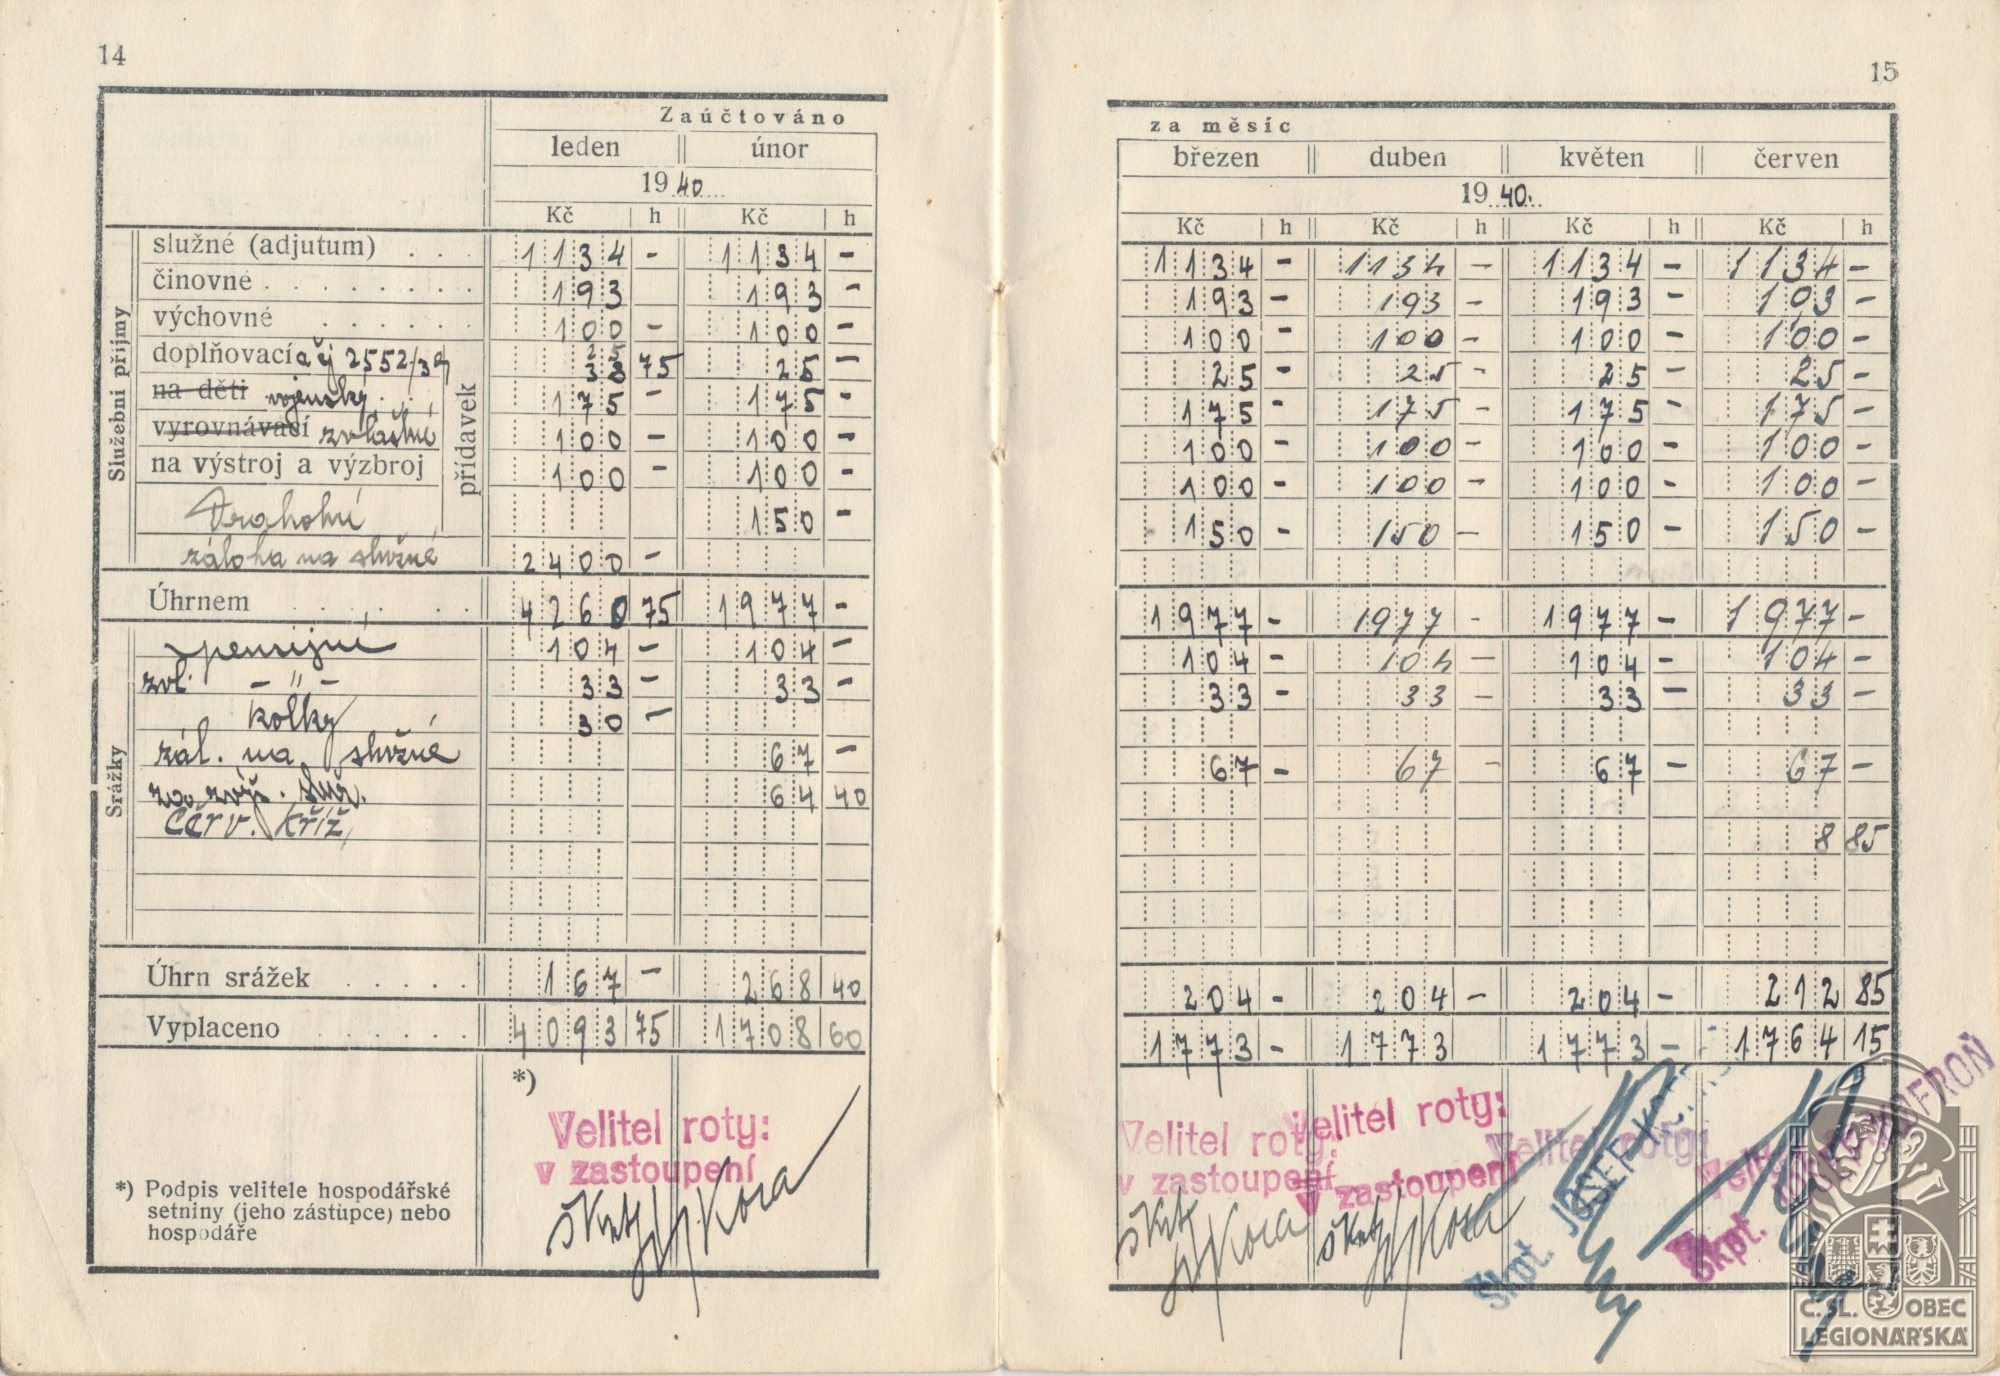 14
Zaúčtováno
leden únor
19 40
Kč h Kč h
Služební příjmy
služné (adjutum) . . . 1134 - 1134 -
činovné . . . . . . . . 193 193 -
výchovné . . . . . . 100 - 100 -
doplňovací a čj 2552/39 75 25 -
na děti vojenský . . 175 - 175 -
vyrovnávací zvláštní 100 - 100 -
na výstroj a výzbroj 100 - 100 -
přídavek
Drahotní 150 -
záloha na služné 2400 -
Úhrnem . . . . . . 4260 75 1977 -
Srážky
pensijní 104 - 104 -
zvl. - " - 33 - 33 -
kolky 30 -
zál. na služné 67 -
zvýš. služ. 64 40
Červ. kříž
Úhrn srážek . . . . . 167 - 268 40
Vyplaceno . . . . . . 4093 75 1708 60
*)
Velitel roty:
v zastoupení
škpt Kosa
*) Podpis velitele hospodářské
setniny (jeho zástupce) nebo
hospodáře
15
za měsíc
březen duben květen červen
19 40.
Kč h Kč h Kč h Kč h
1134 - 1134 - 1134 - 1134 -
193 - 193 - 193 - 193 -
100 - 100 - 100 - 100 -
25 - 25 - 25 - 25 -
175 - 175 - 175 - 175 -
100 - 100 - 100 - 100 -
100 - 100 - 100 - 100 -
150 - 150 - 150 - 150 -
1977 - 1977 - 1977 - 1977 -
104 - 104 - 104 - 104 -
33 - 33 - 33 - 33 -
67 - 67 - 67 - 67 -
8 85
204 - 204 - 204 - 212 85
1773 - 1773 1773 - 1764 15
Velitel roty: Velitel roty: Velitel roty:
v zastoupení v zastoupení
škpt Kosa škpt Kosa
Škpt. JOSEF
Škpt.
Č. SL. OBEC
LEGIONÁŘSKÁ